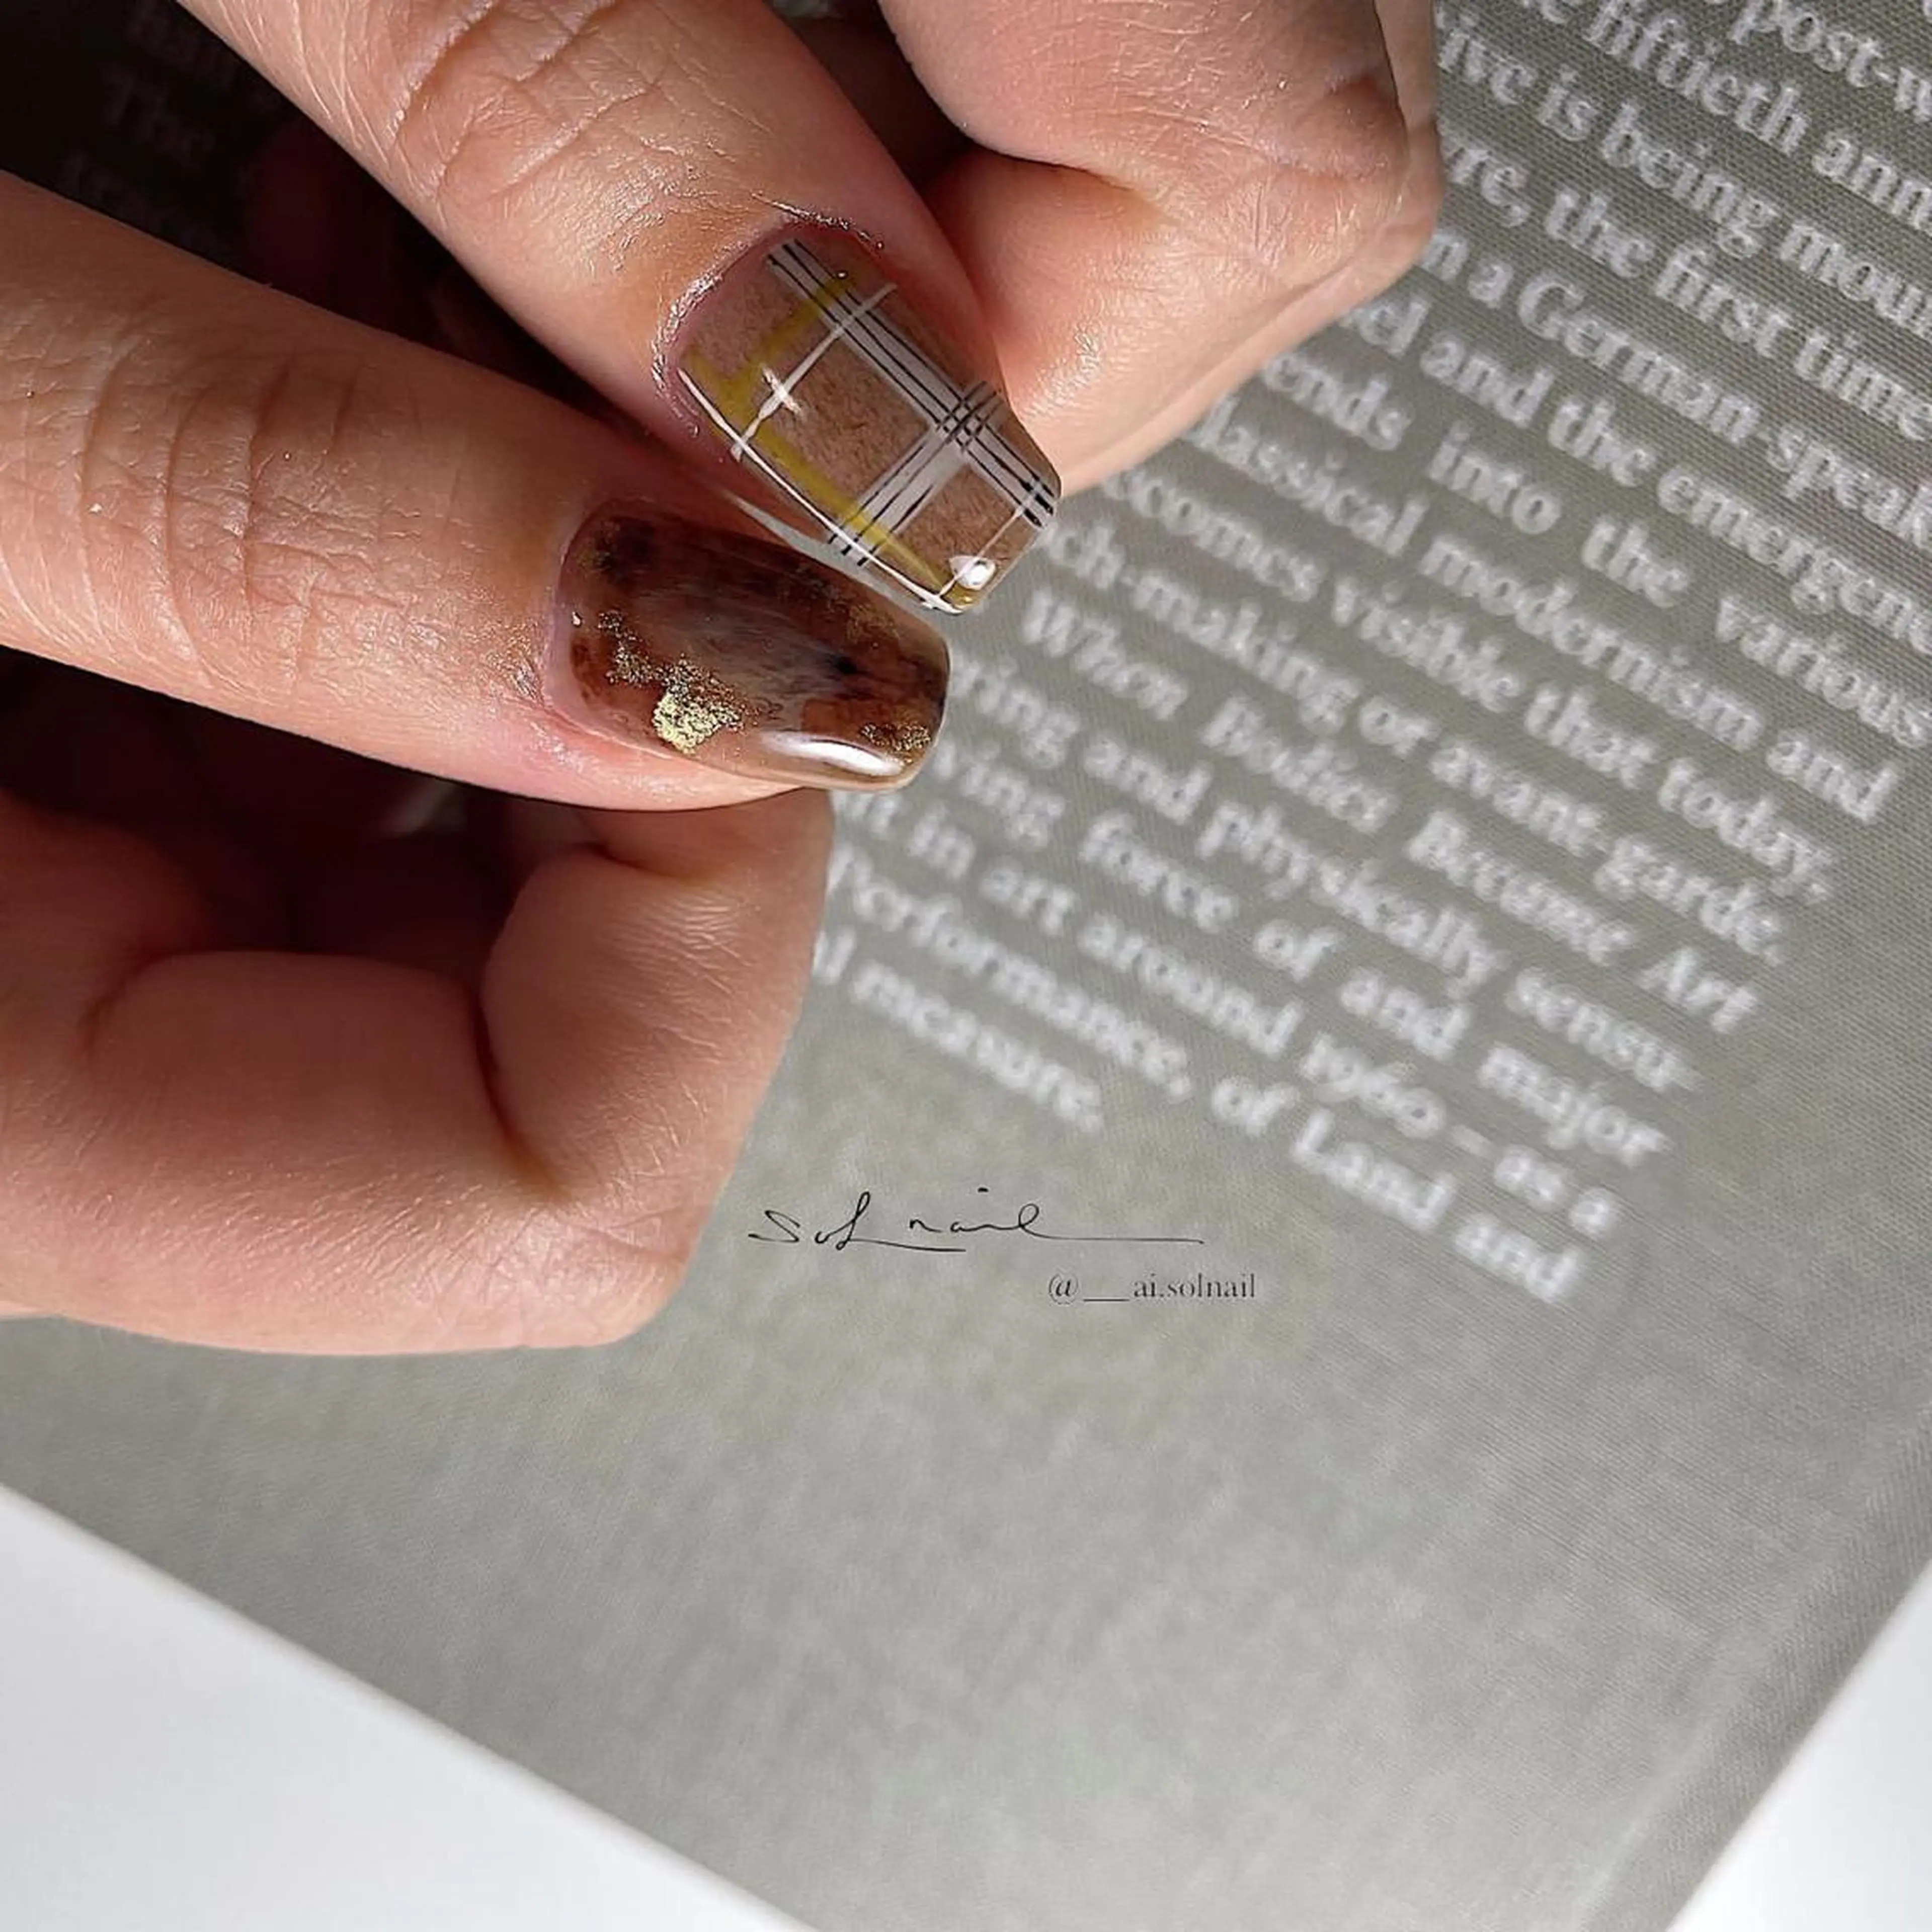 post-w
fiftieth ann
ive is being moun
re, the first time
n a German-speak
el and the emergenc
ends into the various
lassical modernism and
ecomes visible that today,
och-making or avant-garde.
When Bodies Became Art
ring and physically sensu-
ving force of and major
in art around 1960 – as a
Performance, of Land and
l measure.
The
sol nail
@__ai.solnail